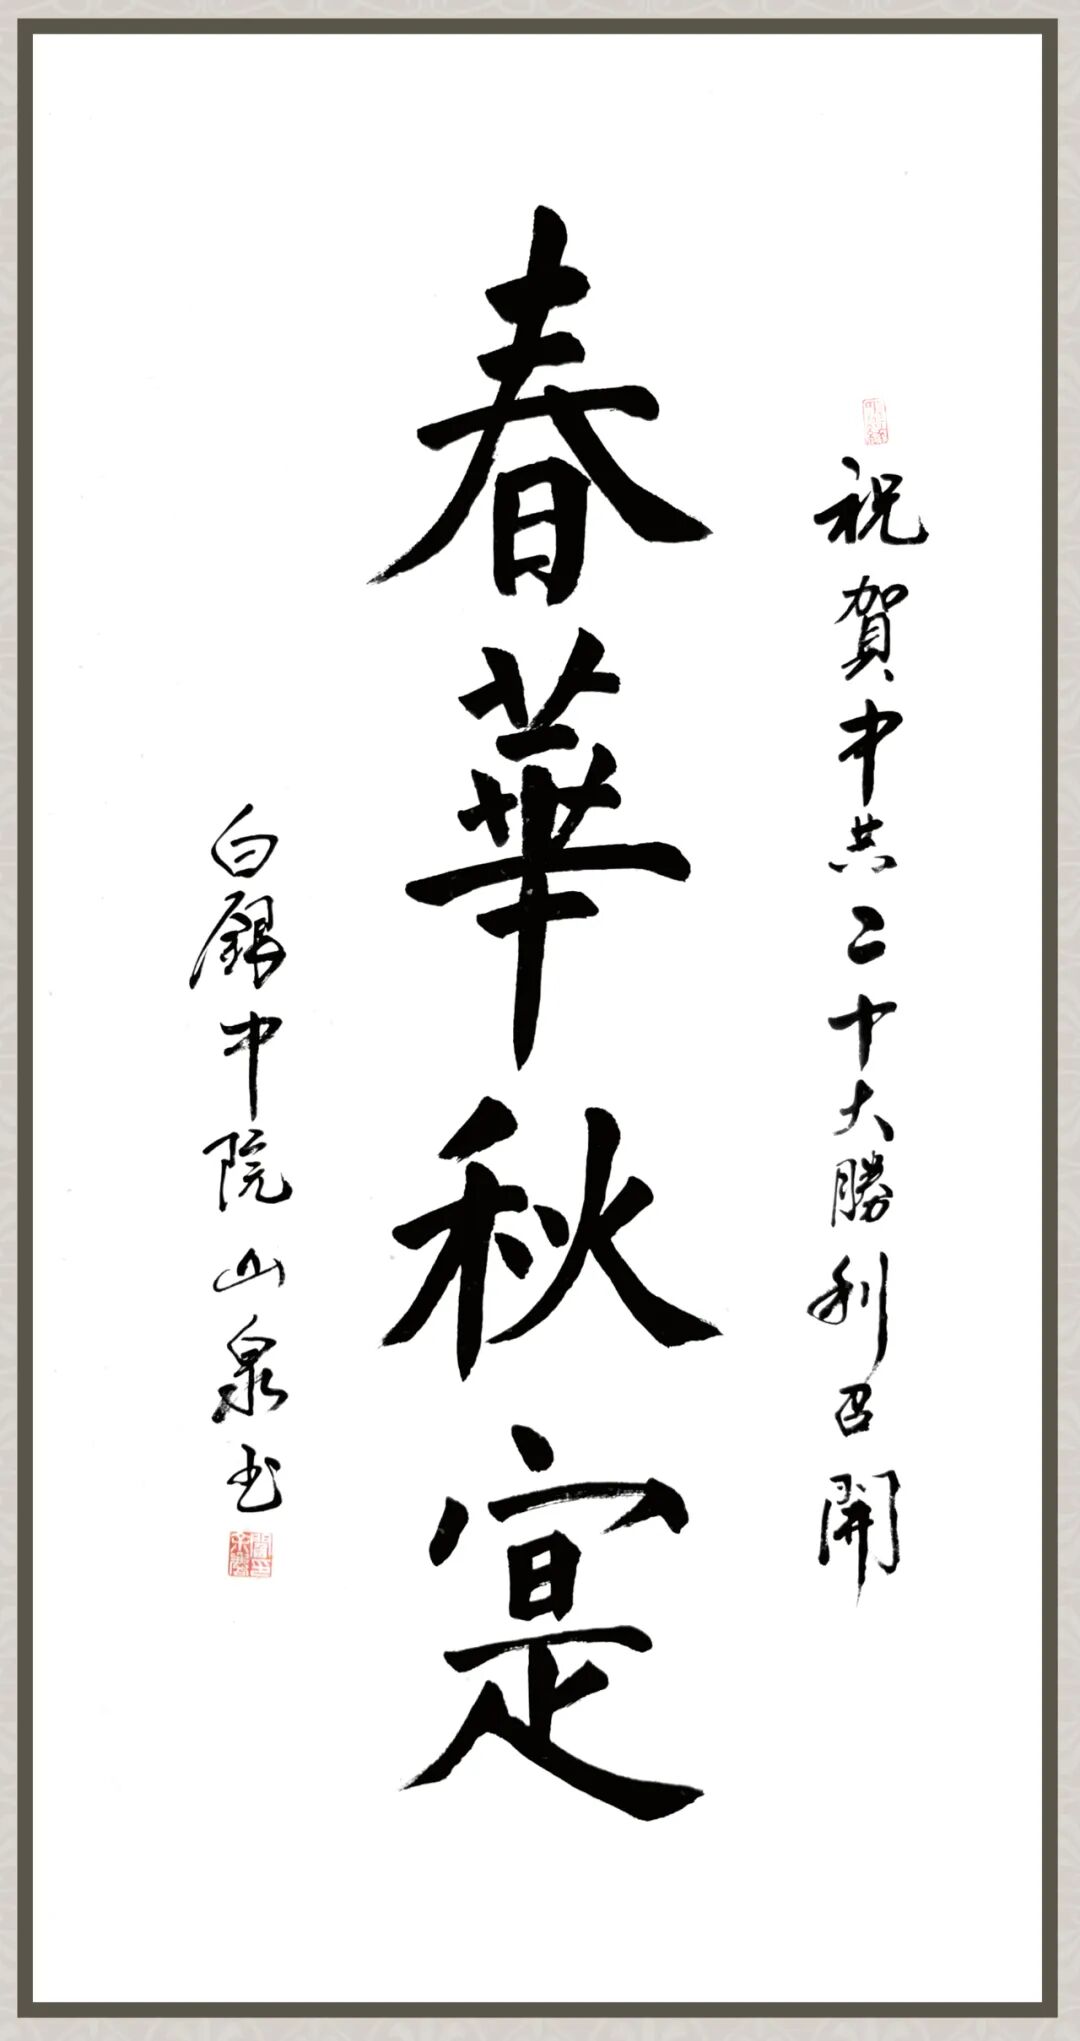 祝賀中共二十大勝利召開
春華秋寔
白銀中院山泉书